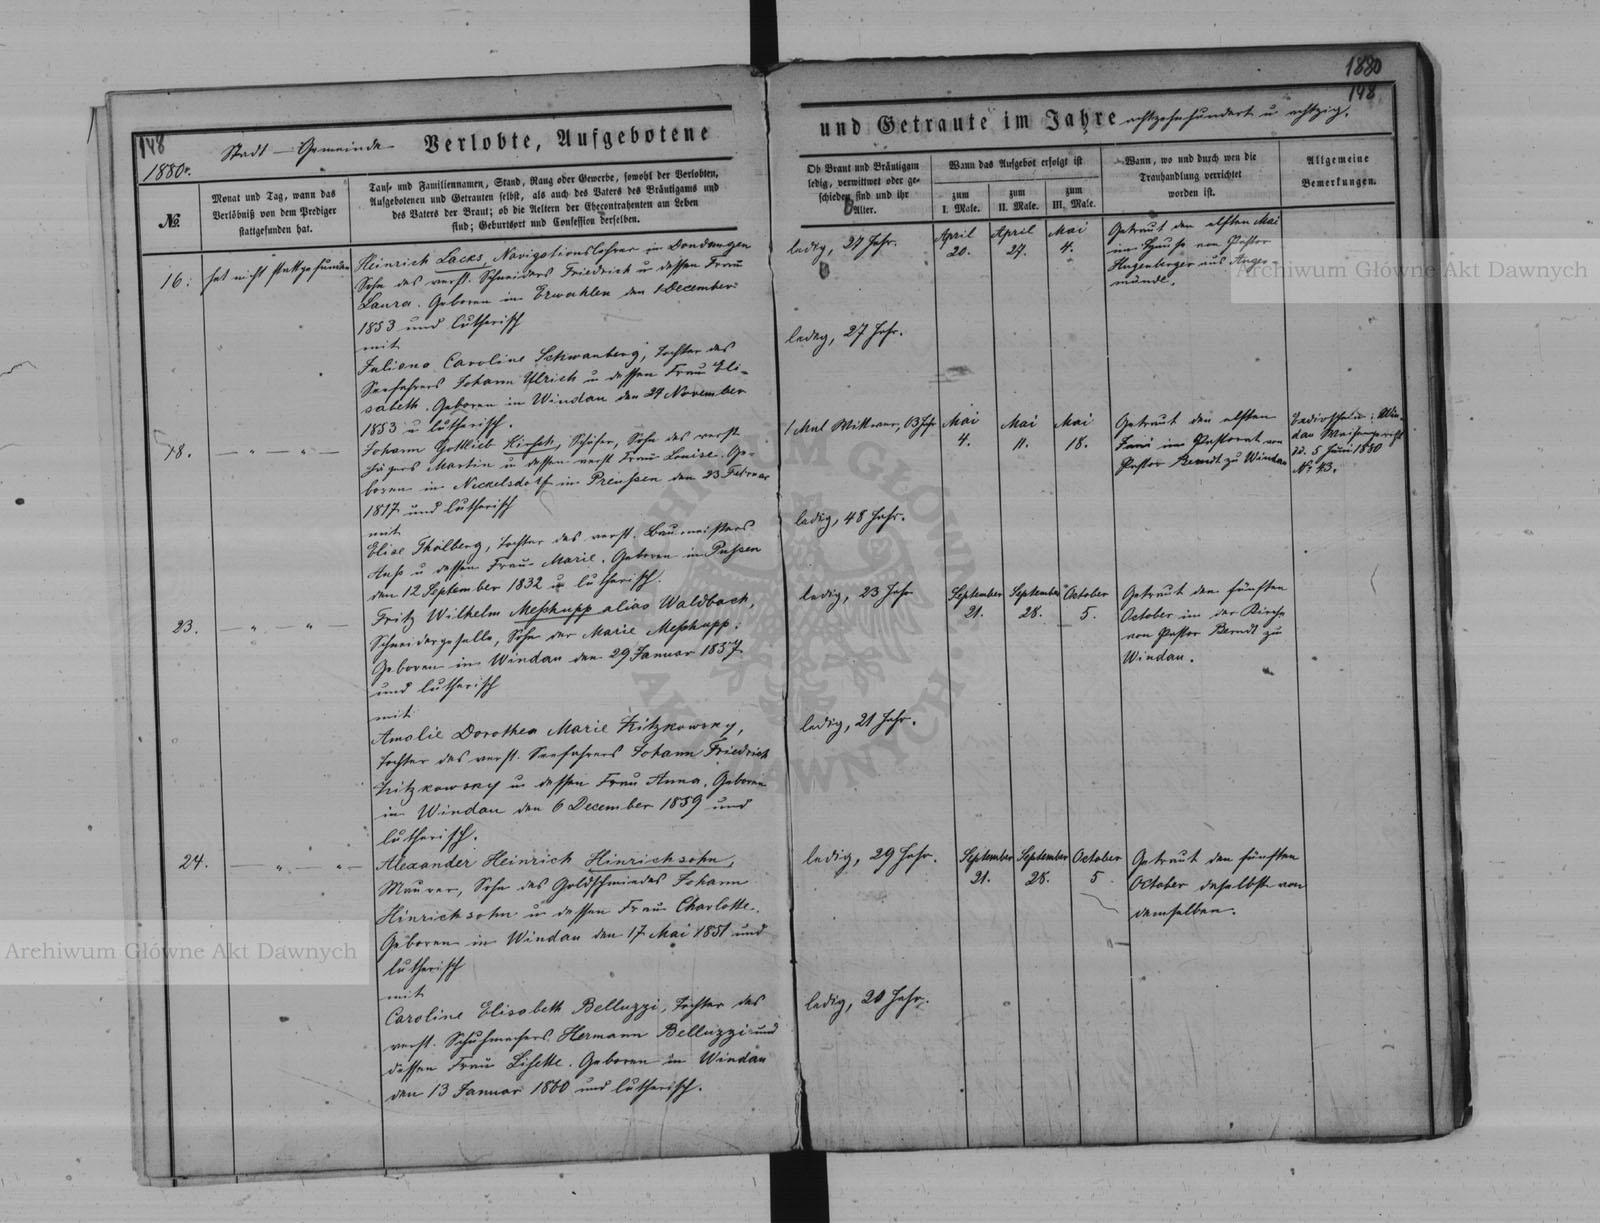 148
1880.
Stadt-Gemeinde
Verlobte, Aufgebotene
№.
Monat und Tag, wann das
Verlöbniß von dem Prediger
stattgefunden hat.
Tauf- und Familiennamen, Stand, Rang oder Gewerbe, sowohl der Verlobten,
Aufgebotenen und Getrauten selbst, als auch des Vaters des Bräutigams und
des Vaters der Braut; ob die Aeltern der Ehecontrahenten am Leben
sind; Geburtsort und Confession derselben.
16.
hat nicht stattgefunden
Heinrich Lacks, Navigationslehrer in Dondangen
Sohn des verst. Schneiders Friedrich u dessen Frau
Laura. Geboren in Erwahlen den 1 December
1853 und lutherisch
mit
Juliana Caroline Schwanberg, Tochter des
Seefahrers Johann Ulrich u dessen Frau Eli-
sabeth. Geboren in Windau den 24 November
1853 u lutherisch.
18.
— „ — „ —
Johann Gottlieb Hirsch, Schäfer, Sohn des verst
Jägers Martin u dessen verst Frau Louise. Ge-
boren in Neckelsdorf in Preussen den 23 Februar
1817 und lutherisch
mit
Elise Thalberg, Tochter des verst. Baumeisters
Ans u dessen Frau Marie. Geboren in Pussen
den 12 September 1832 u lutherisch.
23.
— „ — „ —
Fritz Wilhelm Meschupp alias Waldbach,
Schneidergeselle, Sohn der Marie Meschupp.
Geboren in Windau den 29 Januar 1857
und lutherisch
mit
Amalie Dorothea Marie Kitzkowsky,
Tochter des verst. Seefahrers Johann Friedrich
Kitzkowsky u dessen Frau Anna. Geboren
in Windau den 6 December 1859 und
lutherisch.
24.
— „ — „ —
Alexander Heinrich Hinrichsohn,
Maurer, Sohn des Goldschmiedes Johann
Hinrichsohn u dessen Frau Charlotte.
Geboren in Windau den 17 Mai 1851 und
lutherisch
mit
Caroline Elisabeth Belluzzi, Tochter des
verst. Schuhmachers Hermann Belluzzi und
dessen Frau Lisette. Geboren in Windau
den 13 Januar 1860 und lutherisch.
1880
148
und Getraute im Jahre achtzehnhundert u achtzig.
Ob Braut und Bräutigam
ledig, verwittwet oder ge-
schieden sind und ihr
Alter.
Wann das Aufgebot erfolgt ist
zum
I. Male.
zum
II. Male.
zum
III. Male.
Wann, wo und durch wen die
Trauhandlung verrichtet
worden ist.
Allgemeine
Bemerkungen.
ledig, 27 Jahr.
April
20.
April
27.
Mai
4.
Getraut den elften Mai
im Hause von Pastor
Hugenberger aus Anger-
münde.
ledig, 27 Jahr.
1 Mal Wittwer, 63 Jahr
Mai
4.
Mai
11.
Mai
18.
Getraut den elften
Juni im Pastorat von
Pastor Berndt zu Windau
Win-
dau Waisengericht
dd. 5 Juni 1880
№ 43.
ledig, 48 Jahr.
ledig, 23 Jahr
September
21.
September
28.
October
5.
Getraut den fünften
October in der Kirche
von Pastor Berndt zu
Windau.
ledig, 21 Jahr.
ledig, 29 Jahr.
September
21.
September
28.
October
5.
Getraut den fünften
October daselbst von
demselben.
ledig, 20 Jahr.
Archiwum Główne Akt Dawnych
Archiwum Główne Akt Dawnych
ARCHIWUM GŁÓWNE AKT DAWNYCH